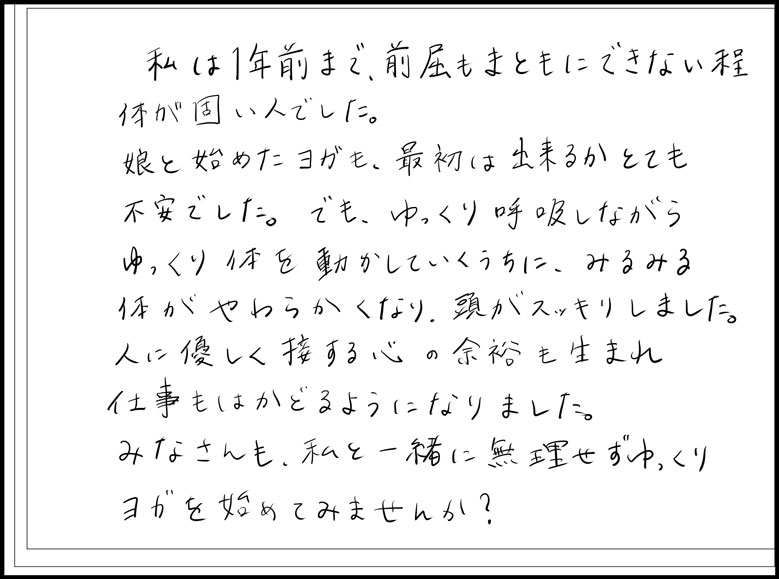 私は1年前まで、前屈もまともにできない程
体が固い人でした。
娘と始めたヨガも、最初は出来るかとても
不安でした。でも、ゆっくり呼吸しながら
ゆっくり体を動かしていくうちに、みるみる
体がやわらかくなり、頭がスッキリしました。
人に優しく接する心の余裕も生まれ
仕事もはかどるようになりました。
みなさんも、私と一緒に無理せずゆっくり
ヨガを始めてみませんか?